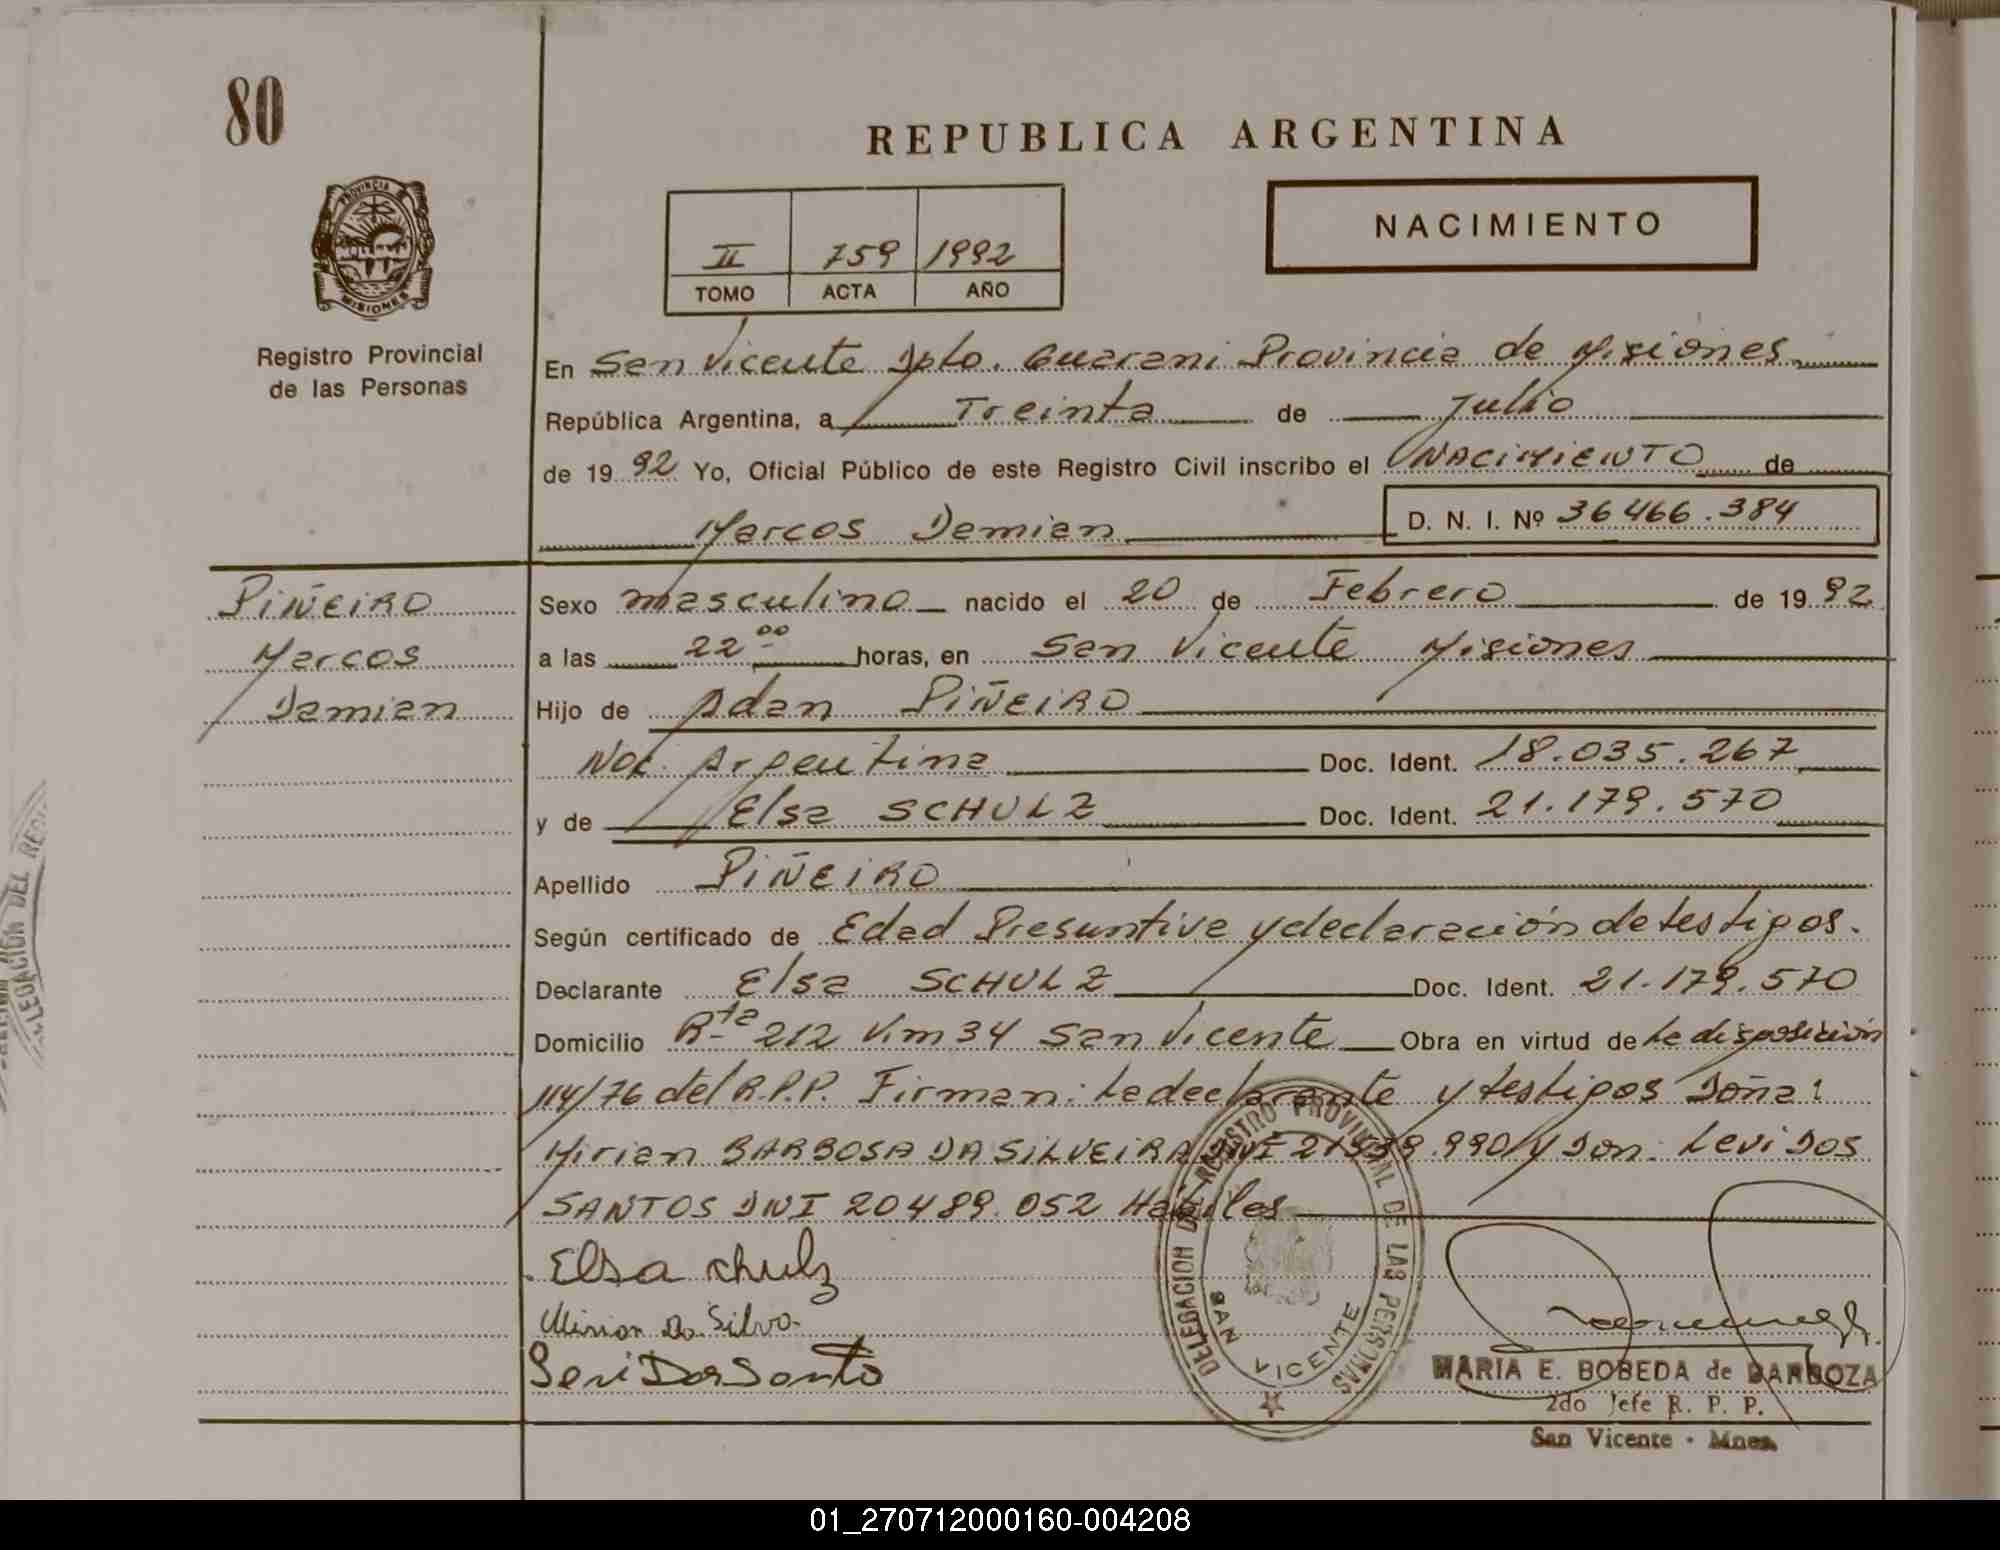 80
REPUBLICA ARGENTINA
PROVINCIA DE
MISIONES
NACIMIENTO
II 759 1992
TOMO ACTA AÑO
Registro Provincial
de las Personas
En San Vicente Dpto. Guarani Provincia de Misiones
República Argentina, a Treinta de Julio
de 1992 Yo, Oficial Público de este Registro Civil inscribo el NACIMIENTO de
Marcos Demian D. N. I. Nº 36466.384
PIÑEIRO
Marcos
Demian
Sexo masculino nacido el 20 de Febrero de 1992
a las 22 00 horas, en San Vicente Misiones
Hijo de Adan PIÑEIRO
Nac. Argentina Doc. Ident. 18.035.267
y de Elsa SCHULZ Doc. Ident. 21.179.570
Apellido PIÑEIRO
Según certificado de Edad Presuntiva y declaración de testigos.
Declarante Elsa SCHULZ Doc. Ident. 21.179.570
Domicilio Rta 212 Km 34 San Vicente Obra en virtud de la disposición
114/76 del R.P.P. Firman: La declarante y testigos Doña:
Mirian BARBOSA DA SILVEIRA DNI 990 y Don: Levi DOS
SANTOS DNI 20489.052 Hábiles
Elsa chulz
Mirian Da Silva
Levi Dos Santo
DELEGACION DEL REGISTRO PROVINCIAL DE LAS PERSONAS
SAN VICENTE
MARIA E. BOBEDA de BARBOZA
2do Jefe R. P. P.
San Vicente - Mnes.
LEGACION DEL REG
01_270712000160-004208